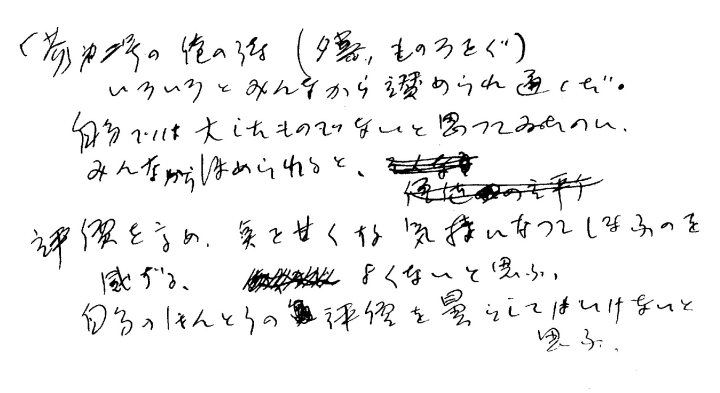 の俺の詩(夕暮、ものろをぐ)
いろいろとみんなから讃められ通しだ。
自分では大したものでないと思つてゐたのに、
みんなからほめられると、
評價を高め、甘くな気持になつてしまふのを
感ずる、よくないと思ふ、
自分のほんとうの評價を曇らしてはいけないと
思ふ、